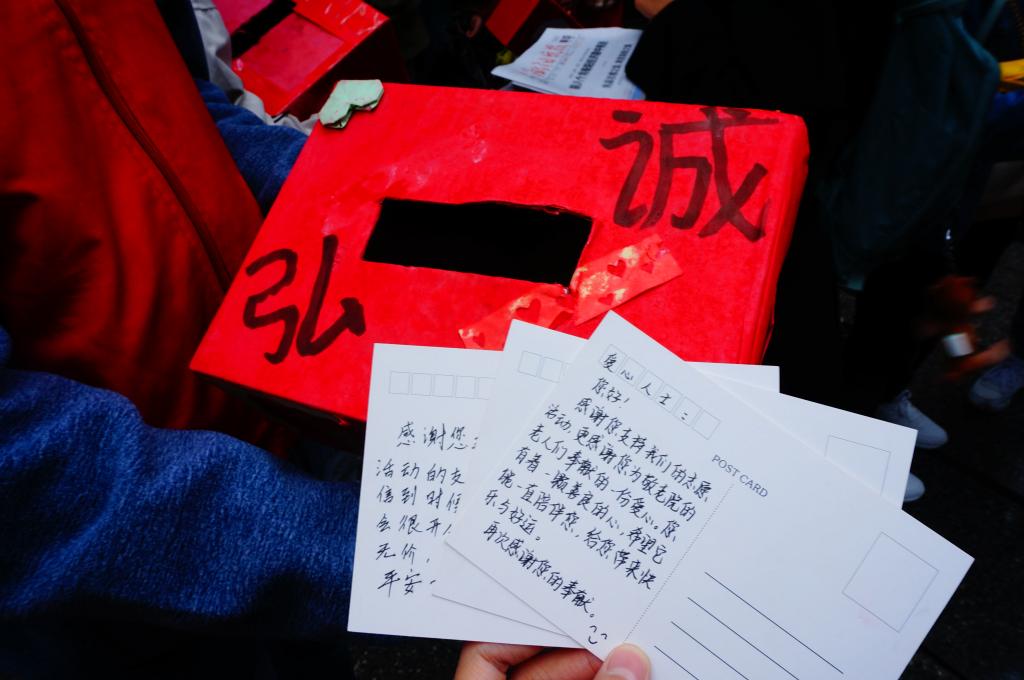 诚
弘
爱心人士：
您好！
感谢您支持我们的志愿
活动，更感谢您为敬老院的
老人们奉献的一份爱心。您
有着一颗善良的心，希望它
能一直陪伴您，给您带来快
乐与好运。
再次感谢您的奉献。
POST CARD
感谢您
活动的支
信到时候
会很开
无价，
平安